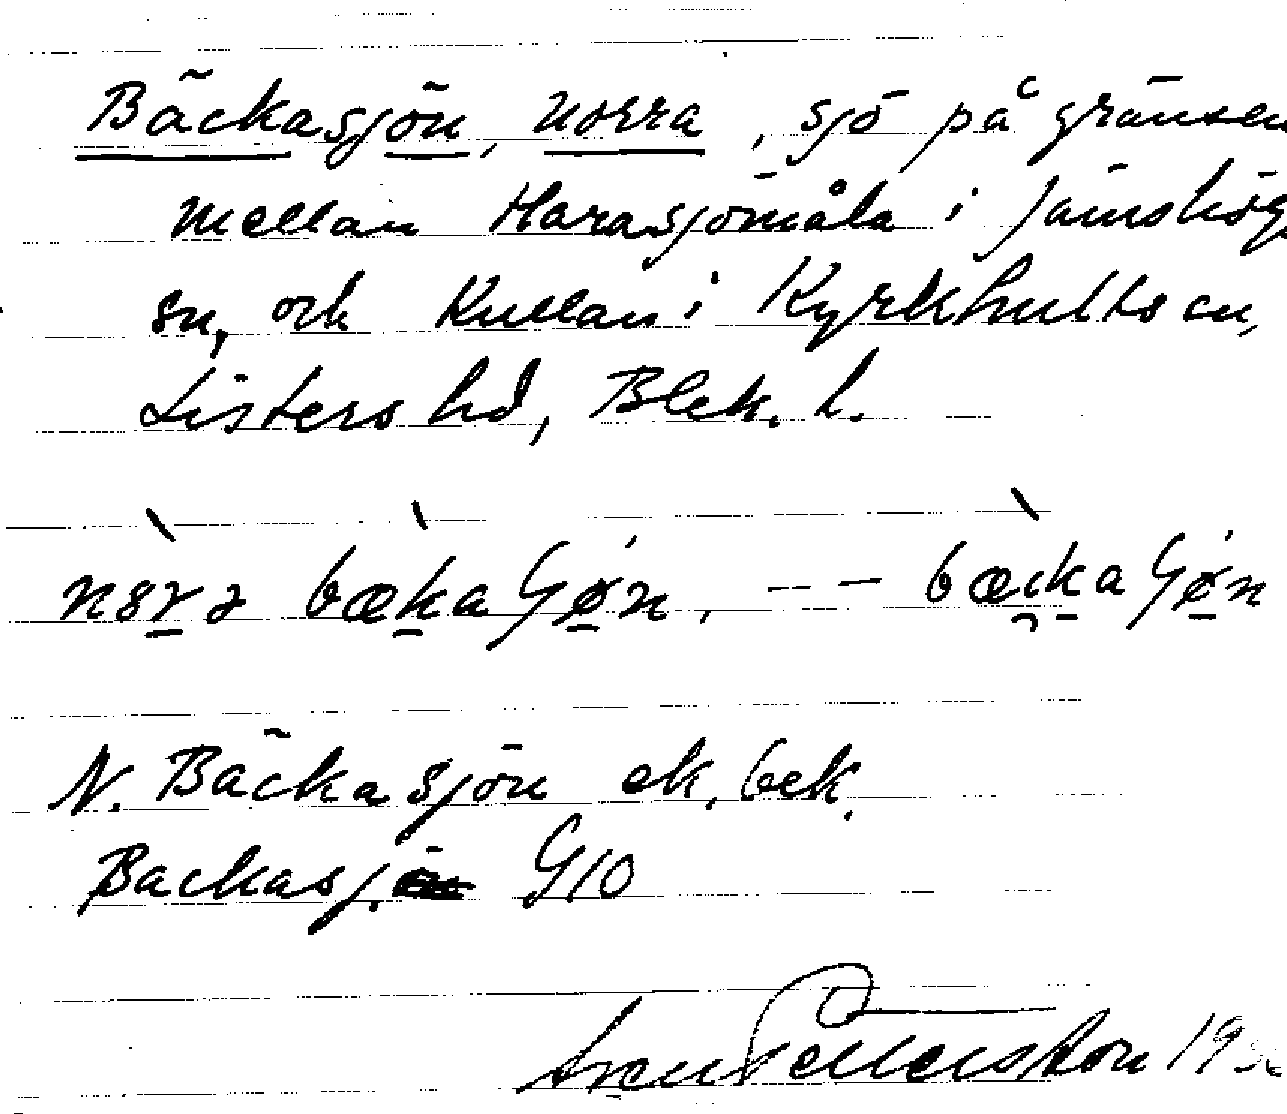 Bäckasjön, norra, sjö på gränsen
mellan Harasjömåla i Jämshögs
sn, och Kullan i Kyrkhults sn,
Listers hd, Blek. l.
nörə bækaʃøn. -- bæckaʃøn
N. Bäckasjön ek. bek.
Backasj. G10
Sven Pettersson